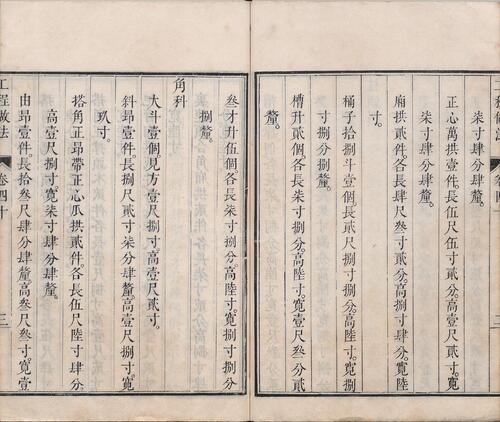 柒寸肆分肆釐。
正心萬拱壹件。長伍尺伍寸貳分。高壹尺貳寸。寬
柒寸肆分肆釐。
廂拱貳件。各長肆尺叁寸貳分。高陸寸。寬陸
寸。
桶子拾捌斗壹個。長貳尺捌寸捌分。高陸寸。寬捌
寸捌分捌釐。
槽升貳個。各長柒寸捌分。高陸寸。寬壹尺叁分貳
釐。
叁才升伍個。各長柒寸捌分。高陸寸。寬捌寸捌分
捌釐。
角科
大斗壹個。見方壹尺捌寸。高壹尺貳寸。
斜昻壹件。長捌尺貳寸柒分肆釐。高壹尺捌寸。寬
玖寸。
搭角正昻帶正心瓜拱貳件。各長伍尺陸寸肆分。
高壹尺捌寸。寬柒寸肆分肆釐。
由昻壹件。長拾叁尺肆分肆釐。高叁尺叁寸。寬壹
工程做法
卷四十
三